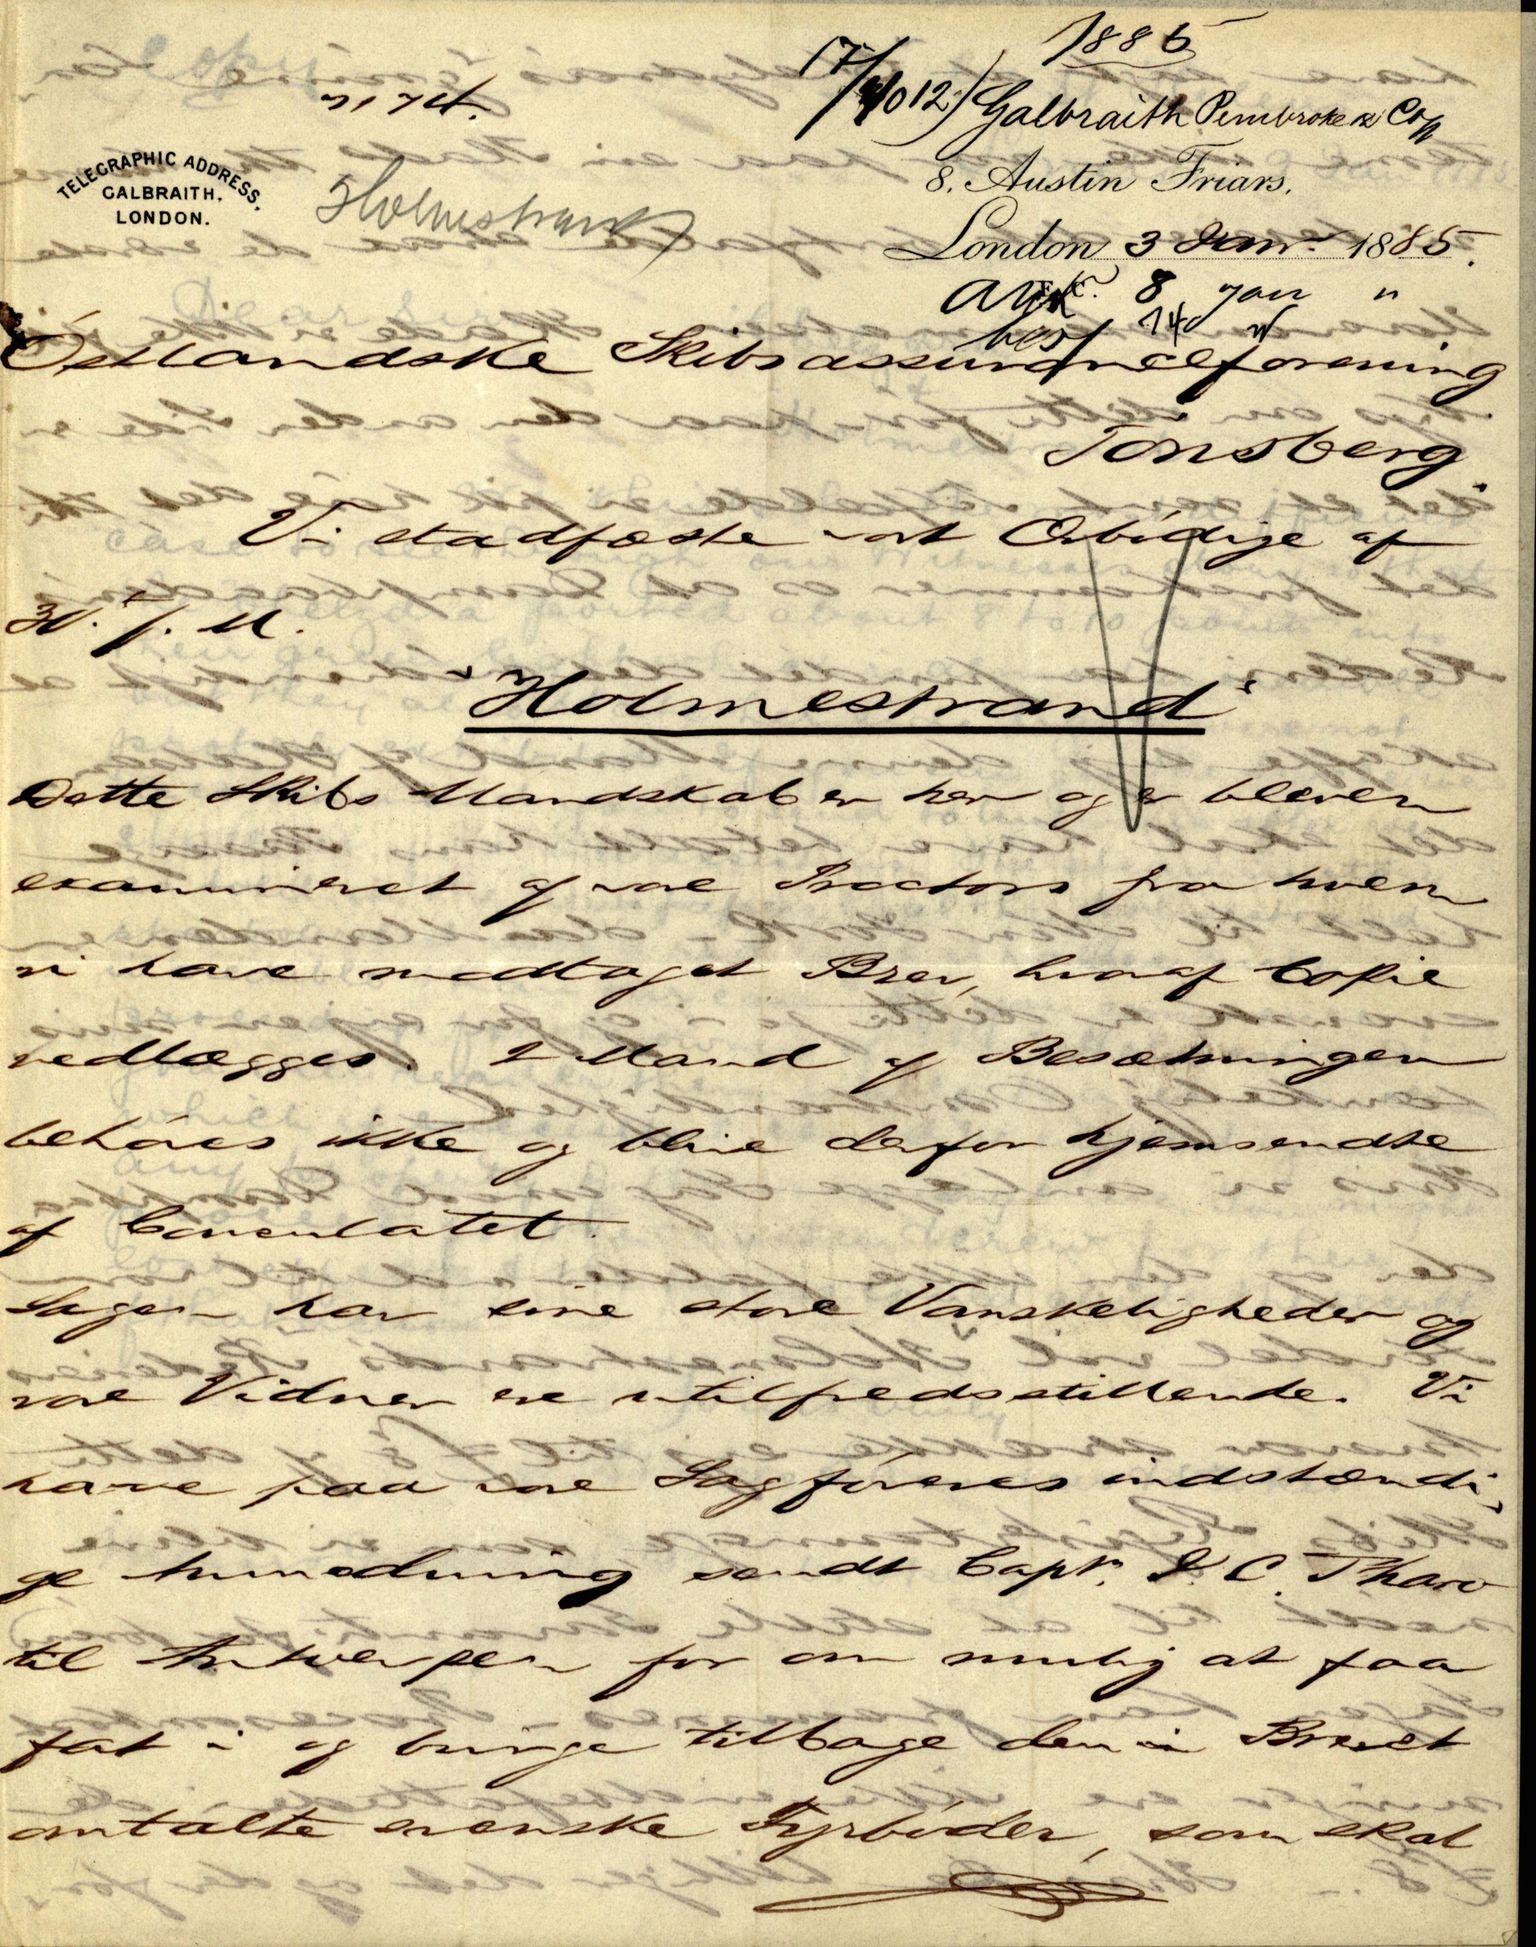 1885
17/4012) Galbraith Pembroke & Co
8, Austin Friars,
TELEGRAPHIC ADDRESS,
GALBRAITH.
LONDON.
Holmestrand
London 3 Janr. 1885.
Ank. 8 Jan "
besv 14 "
Östlandske Skibsassuranceforening
Tönsberg
Vi stadfæste vort Ærbödige af
30. f. M.
"Holmestrand"
Dette Skibs Mandskab er her og er bleven
examineret af vore Proctors fra hvem
vi have modtaget Brev, hvoraf Copie
vedlægges. 2 Mand af Besætningen
behöves ikke og blive derfor hjemsendte
af Consulatet.
Sagen har sine store Vanskeligheder og
vore Vidner ere utilfredsstillende. Vi
have paa vore Sagföreres indstændi-
ge Anmodning sendt Capt. J. C. Tharo
til Antwerpen for om mulig at faa
fat i og bringe tilbage den i Brevet
omtalte svenske Fyrböder, som skal